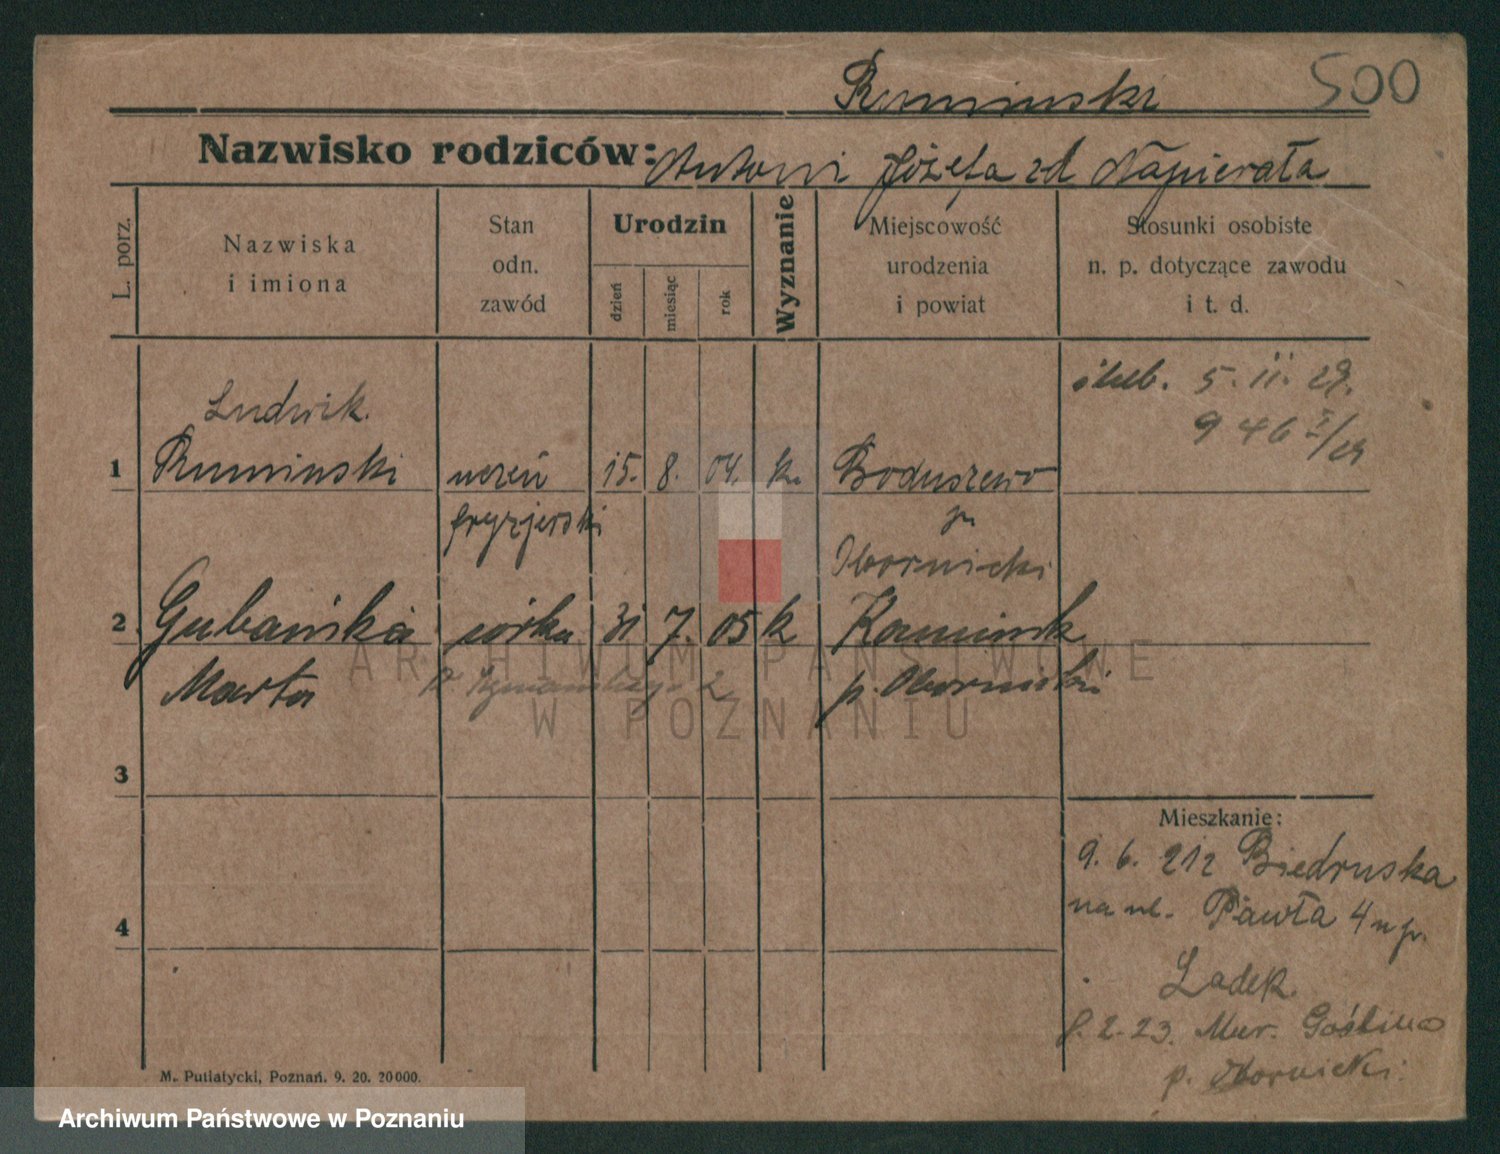 Ruminski 500
Nazwisko rodziców: Antoni Józefa zd Napierała
L. porz.
Nazwiska
i imiona
Stan
odn.
zawód
Urodzin
dzień
miesiąc
rok
Wyznanie
Miejscowość
urodzenia
i powiat
Stosunki osobiste
n. p. dotyczące zawodu
i t. d.
ślub. 5. 11. 29.
946
Ludwik.
1 Ruminski uczeń 15. 8. 04. k. Boduszewo
fryzjerski p.
Obornicki
2 Gubańska córka 31 7. 05 k
Marta p. Obornicki
3
4
Mieszkanie:
9. 6. 212 Biedruska
na ul. Pawła 4
Ladek.
2-23. Mur. Goślina
p. Obornicki.
M. Putiatycki, Poznań. 9. 20. 20000.
ARCHIWUM PAŃSTWOWE
W POZNANIU
Archiwum Państwowe w Poznaniu